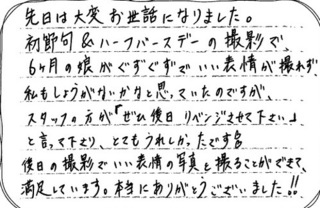 先日は大変お世話になりました。
初節句&ハーフバースデーの撮影で、
6ヶ月の娘がぐずぐずでいい表情が撮れず、
私もしょうがないかなと思っていたのですが、
スタッフの方が「ぜひ後日リベンジさせて下さい」
と言って下さり、とてもうれしかったです
後日の撮影でいい表情の写真を撮ることができて、
満足しています。本当にありがとうございました!!